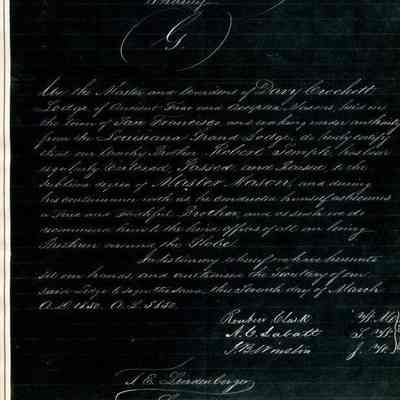 Charity
G.
We the Master and Wardens of Davy Crockett
Lodge, of Ancient Free and Accepted Masons, held in
the Town of San Francisco, and working under authority
from the Louisiana Grand Lodge, do hereby certify
that our worthy Brother Robert Semple, has been
regularly Entered, Passed, and Raised to the
sublime degree of Master Mason, and during
his continuance with us, he conducted himself as becomes
a True and Faithful Brother, and as such we do
recommend him to the kind offices of all our loving
Brethren around the Globe.
In testimony whereof we have hereunto
set our hands, and caused the Secretary of our
said Lodge to sign the same, this day of March
A.D. 1850. A.L. 5850.
Reuben Clark W. M.
A. C. Labatt S. W.
J. W.
T. E. Leindenberger